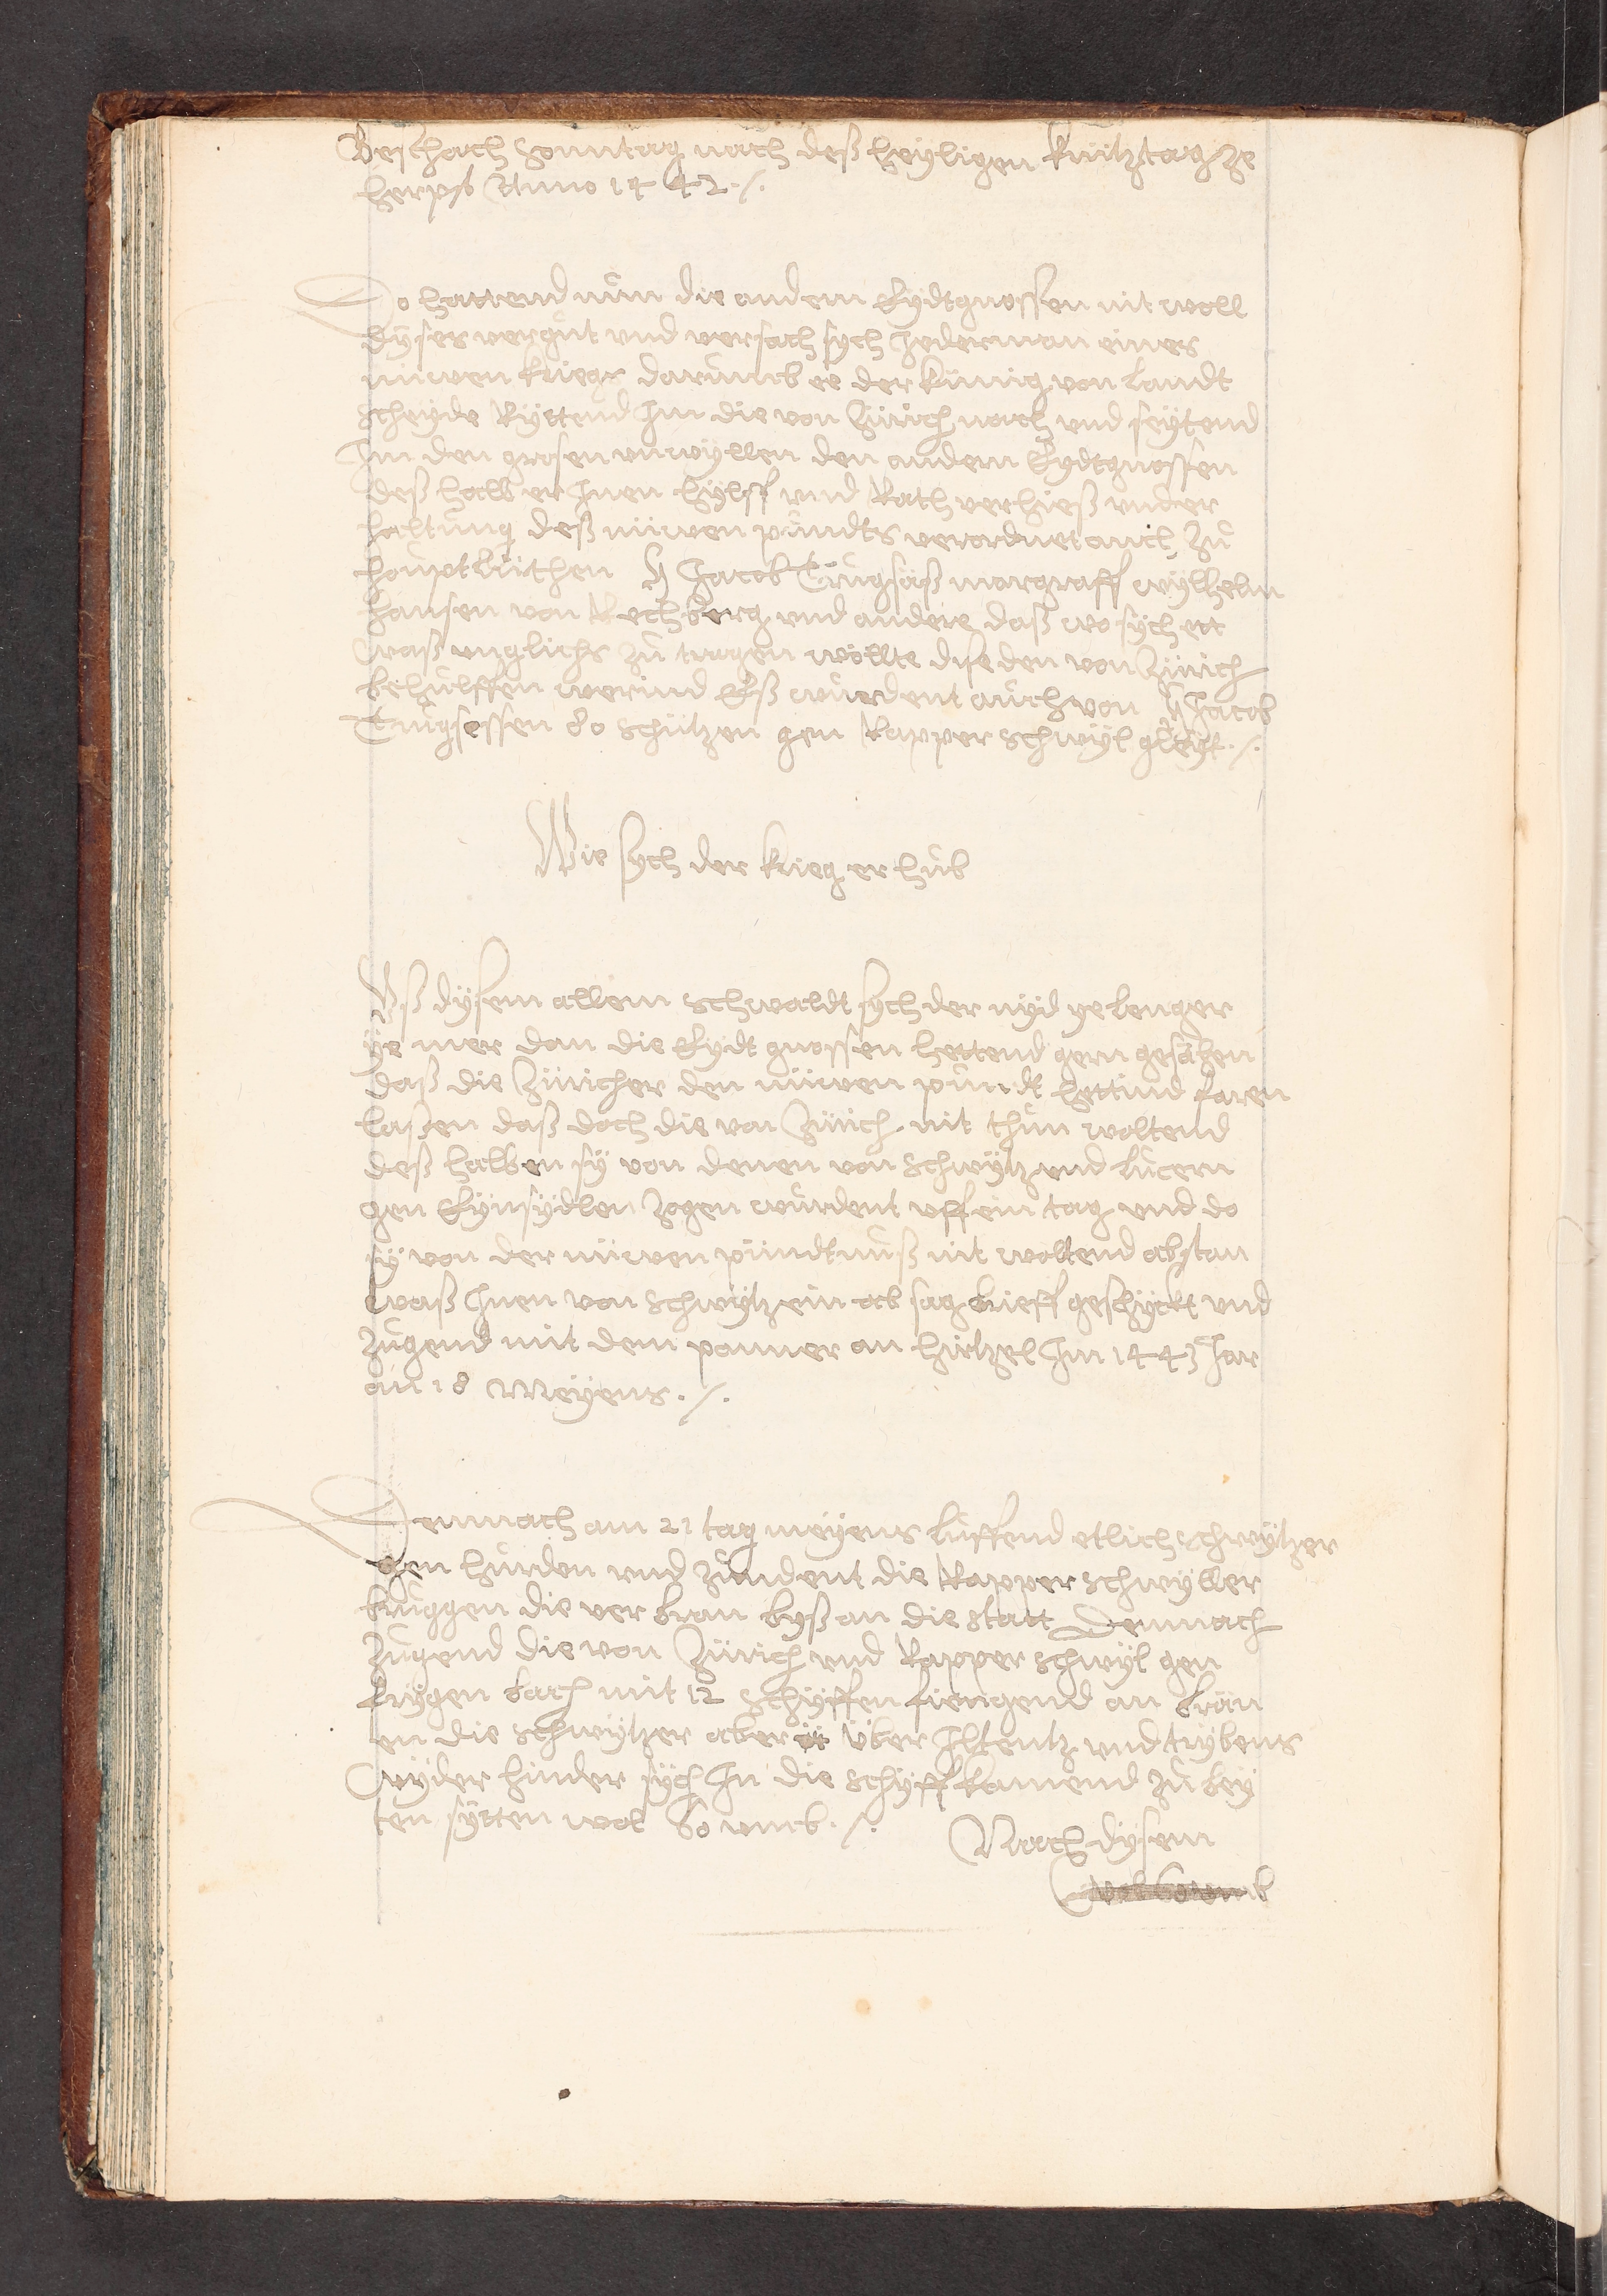 Beschach Sonntag nach deß heyligen krützstag ze
herpst Anno 1442 ./.
Do hattend nún die andern Eydtgnossen nit woll
dyser vergút und versach sych Jederman eines
nüwen kriegs darúmb ee der küning von landt
scheyde Ryttend Jm die von Zürich nach und seytend
Jm den grosen unwyllen den andern Eydtgnossen
deß halb er Jnen hylff und Rath verhieß under
haltúng deß nüwen púndts verordnet auch zú
hoúpt lüthen H Jacob Trúgsäß margraff wylhelm
hansen von Rechberg und andere daß wo sych ett
waß unglichs zú tragen wöllte dise den von Zürich
beholffen werind Eß wúrdent aúch von H Jacob
Trúgsessen 80 schützen gen Rapperschwyl gleyt ./.
Wie sych der krieg er húb
Uß dysem allem schwaldt sych der nyd ye lenger
ye mer dan die Eydt gnossen hettend gern gesächen
daß die Züricher den nüwen púndt hettind faren
laßen daß doch die von Zürich nit thún woltend
deß halben sy von denen von Schwytz und lúcern
gen Eynsydlen zogen wúrdent uff ein tag und do
sy von der nüwen pündtnúß nit woltend abstan
waß Jnen von Schwytz ein ab sag brieff geschyckt und
zúgend mit dem panner an hirtzel Jm 1443 Jar
an 18 Meyens ./.
Demnach am 21 tag meyens lúffend etlich schwytzer
gen húrden und zúndent die Rapperschwyller
brúggen die ver bran byß an die statt Demnach
zúgend die von Zürich und Rapperschwyl gen
frygen bach mit 12 schyffen fiengend an brän
en die schwytzer aber über Jltentz und trybens
wyder hinder sych Jn die schyff kamend zú bey
ten sytten wol 60 umb ./.
Nach dysem